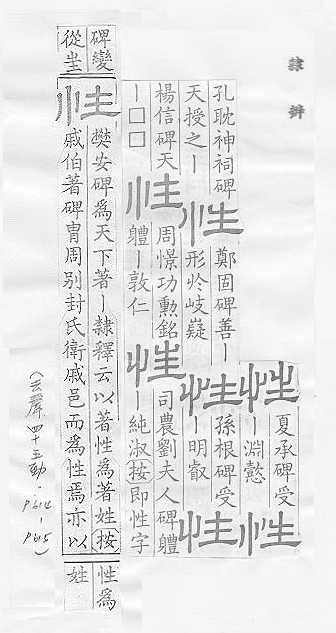 隸辨
性
夏承碑受
—淵懿
性
孔耽神祠碑
天授之—
性
鄭固碑善—
形於岐嶷
性
孫根碑受
—明叡
性
楊信碑天
—□□
性
周憬功勳銘
軆—敦仁
性
司農劉夫人碑軆
—純淑按即性字
碑變
從坐
性
樊安碑爲天下著—隸釋云以著性爲著姓按
戚伯著碑胄周别封氏衛戚邑而爲性焉亦以
性爲
姓
(去聲四十五勁·P614-P615)